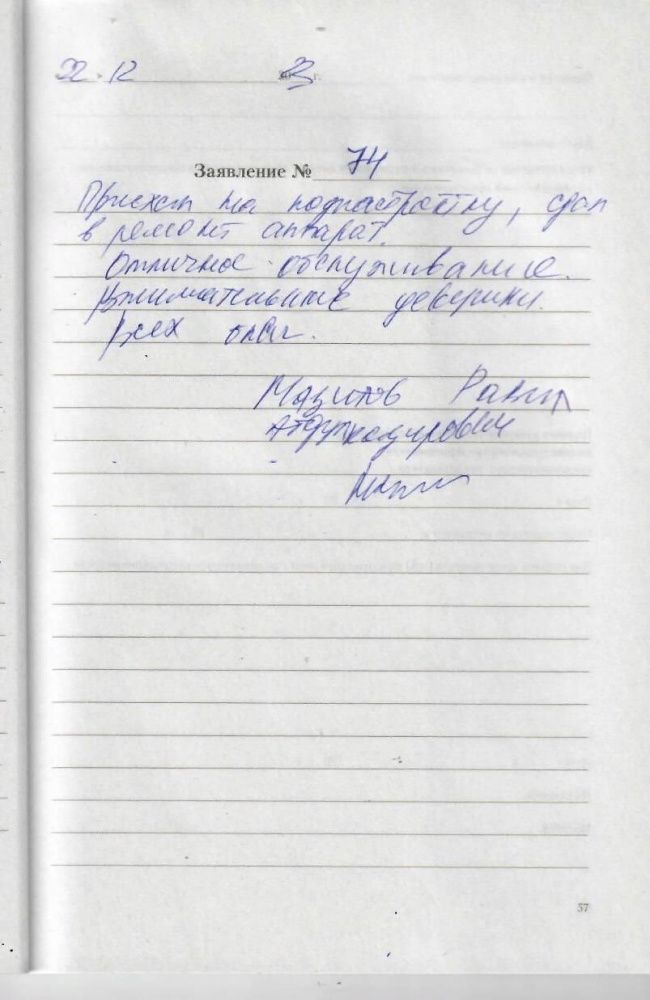 22.12 2023 г.
Заявление № 74
Приехал на поднастройку, сдал
в ремонт аппарат.
Отличное обслуживание.
Внимательные
Всех благ.
Мазитов Равил
Абдулкадирович
57